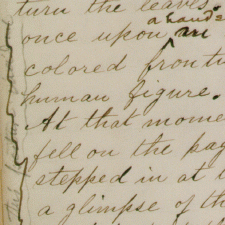 turn the leaves.
a hands
once upon in
colored fron
human figure.
At that mome
fell on the pag
stepped in at t
a glimpse of th